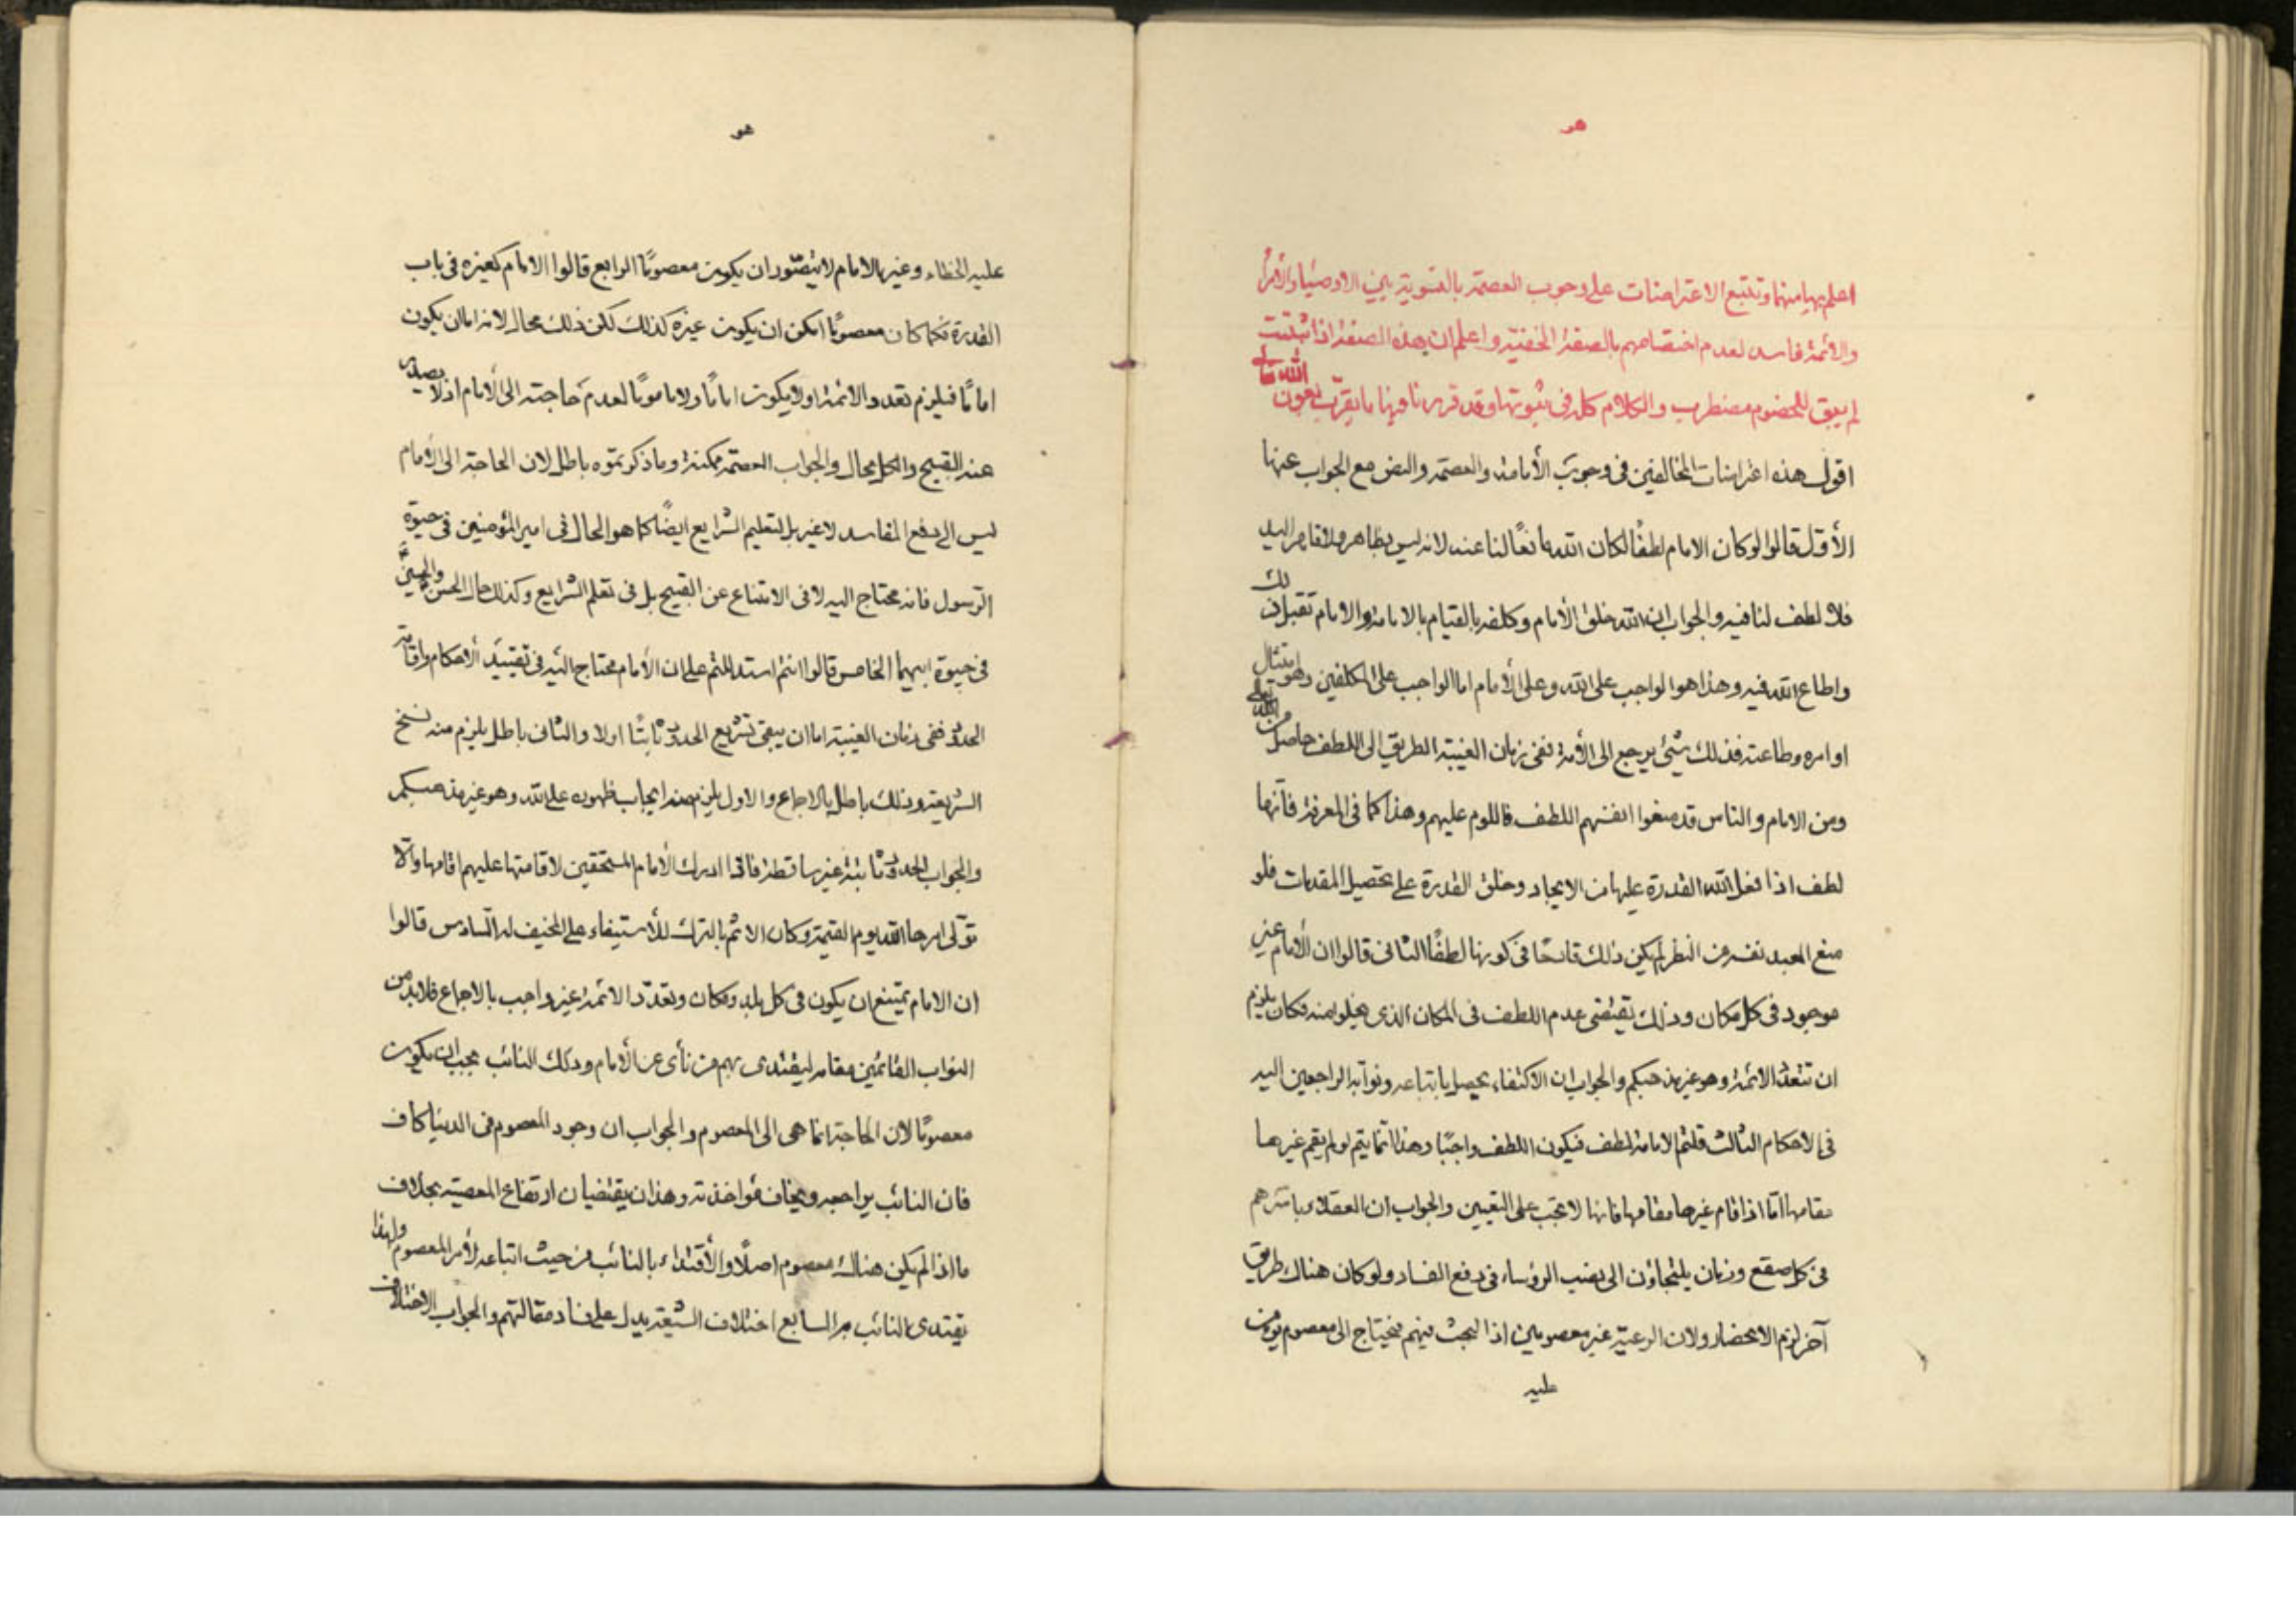 هو
اعلم بها منها وتتبع الاعتراضات على وجوب العصمة بالتسوية بين الاوصياء والأمراء
والائمة فاسد لعدم اختصاصهم بالصفة الخفية واعلم ان هذه الصفة اذا ثبتت
لم يبق للخصوم مضطرب والكلام كله في ثبوتها وقد قررنا فيها ما يقرب بعون الله تعالى
اقول هذه اعتراضات المخالفين في وجوب الأمامة والعصمة والنص مع الجواب عنها
الأول قالوا لو كان الامام لطفًا لكان الله مانعًا لنا عنه لانه ليس بظاهر ولا قاهر اليد
فلا لطف لنا فيه والجواب ان الله خلق الأمام وكلفه بالقيام بالامامة والامام تقبل ذلك
واطاع الله فيه وهذا هو الواجب على الله وعلى الأمام اما الواجب على المكلفين وهو امتثال
اوامره وطاعته فذلك شيئ يرجع الى الأمة ففي زمان الغيبة الطريق الى اللطف حاصل من الله تعالى
ومن الامام والناس قد منعوا انفسهم اللطف فاللوم عليهم وهذا كما في المعرفة فأنها
لطف اذا فعل الله القدرة عليها من الايجاد وخلق القدرة على تحصيل المقدمات فلو
منع العبد نفسه من النظر لم يكن ذلك قادحًا في كونها لطفًا الثاني قالوا ان الأمام غير
موجود في كل مكان وذلك يقتضي عدم اللطف في المكان الذي يخلوا منه فكان يلزم
ان تتعدد الائمة وهو غير مذهبكم والجواب ان الاكتفاء يحصل باتباعه ونوابه الراجعين اليه
في الاحكام الثالث قلتم الامامة لطف فيكون اللطف واجبًا وهذا انما يتم لو لم يقم غيرها
مقامها امّا اذا قام غيرها مقامها فانها لا تجب على التعيين والجواب ان العقلاء باسرهم
في كل صقع وزمان يلتجاؤن الى نصب الرؤساء في دفع الفساد ولو كان هناك طريق
آخر لزم الانحصار ولان الرعية غير معصومين اذا البحث فيهم فيحتاج الى معصوم يؤمن
عليه
هو
عليه الخطاء وغير الامام لا يتصوّر ان يكون معصومًا الرابع قالوا الامام كغيره في باب
القدرة فكما كان معصومًا امكن ان يكون غيره كذلك لكن ذلك محال لانه اما ان يكون
امامًا فيلزم تعدد الائمة او لا يكون امامًا ولا ماموما لعدم حاجته الى الأمام اذ لا يصدر
عنه القبيح والكل محال والجواب العصمة ممكنة وما ذكرتموه باطل لان الحاجة الى الأمام
ليس الى دفع المفاسد لا غير بل لتعليم الشرايع ايضًا كما هو الحال في امير المؤمنين في حيوة
الرسول فانه محتاج اليه لا في الامتناع عن القبيح بل في تعلم الشرايع وكذلك حال الحسن والحسين
في حيوة ابيهما الخامس قالوا انتم استدللتم على ان الأمام محتاج اليه في تقييد الأحكام واقامة
الحدود ففي زمان الغيبة اما ان يبقى تشريع الحدود ثابتًا او لا والثاني باطل يلزم منه نسخ
الشريعة وذلك باطل بالاجماع والاول يلزم منه ايجاب ظهوره على الله وهو غير مذهبكم
والجواب الحدود ثابتة غير ساقطة فاذا ادرك الأمام المستحقين لاقامتها عليهم اقامها والّا
تولّى امرها الله يوم القيمة وكان الاثم بالترك للأستيفاء على المخيف له السادس قالوا
ان الامام يمتنع ان يكون في كل بلد ومكان وتعدّد الائمة غير واجب بالاجماع فلابد من
النواب القائمين مقامه ليقتدى بهم من نأى عن الأمام وذلك النائب يجب ان يكون
معصومًا لان الحاجة انما هي الى المعصوم والجواب ان وجود المعصوم في الدنيا كاف
فان النائب يراجعه ويخاف مؤاخذته وهذان يقتضيان ارتفاع المعصية بخلاف
ما اذا لم يكن هناك معصوم اصلًا والأقتداء بالنائب من حيث اتباعه لأمر المعصوم ولهذا
يقتدى النائب به السابع اختلاف الشيعة يدل على فساد مقالتهم والجواب الاختلاف